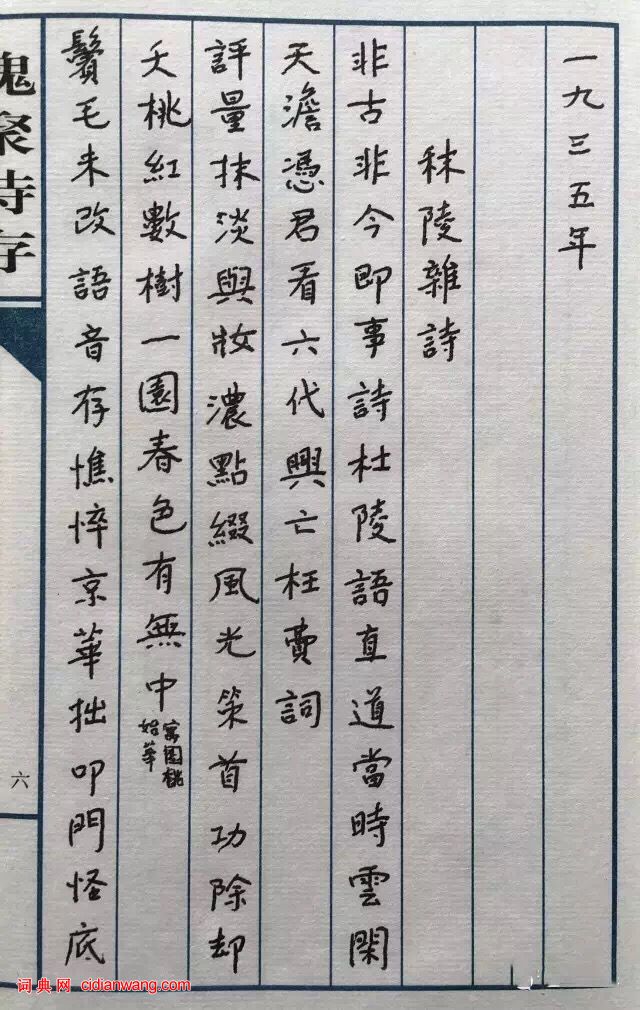 一九三五年
秣陵雜詩
非古非今即事詩杜陵語直道當時雲閑
天澹憑君看六代興亡枉費詞
評量抹淡與妝濃點綴風光策首功除却
夭桃紅數樹一園春色有無中
寓園桃
始華
鬢毛未改語音存憔悴京華拙叩門怪底
槐聚詩存
六
词典网 cidianwang.com